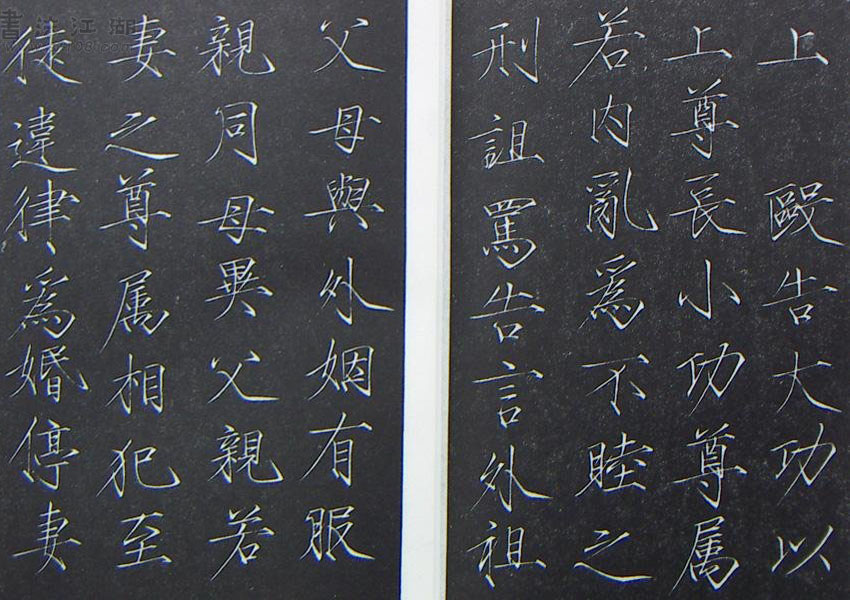 上 毆告大功以
上尊長小功尊属
若内亂爲不睦之
刑詛罵告言外祖
父母與外姻有服
親同母異父親若
妻之尊属相犯至
徒違律爲婚停妻